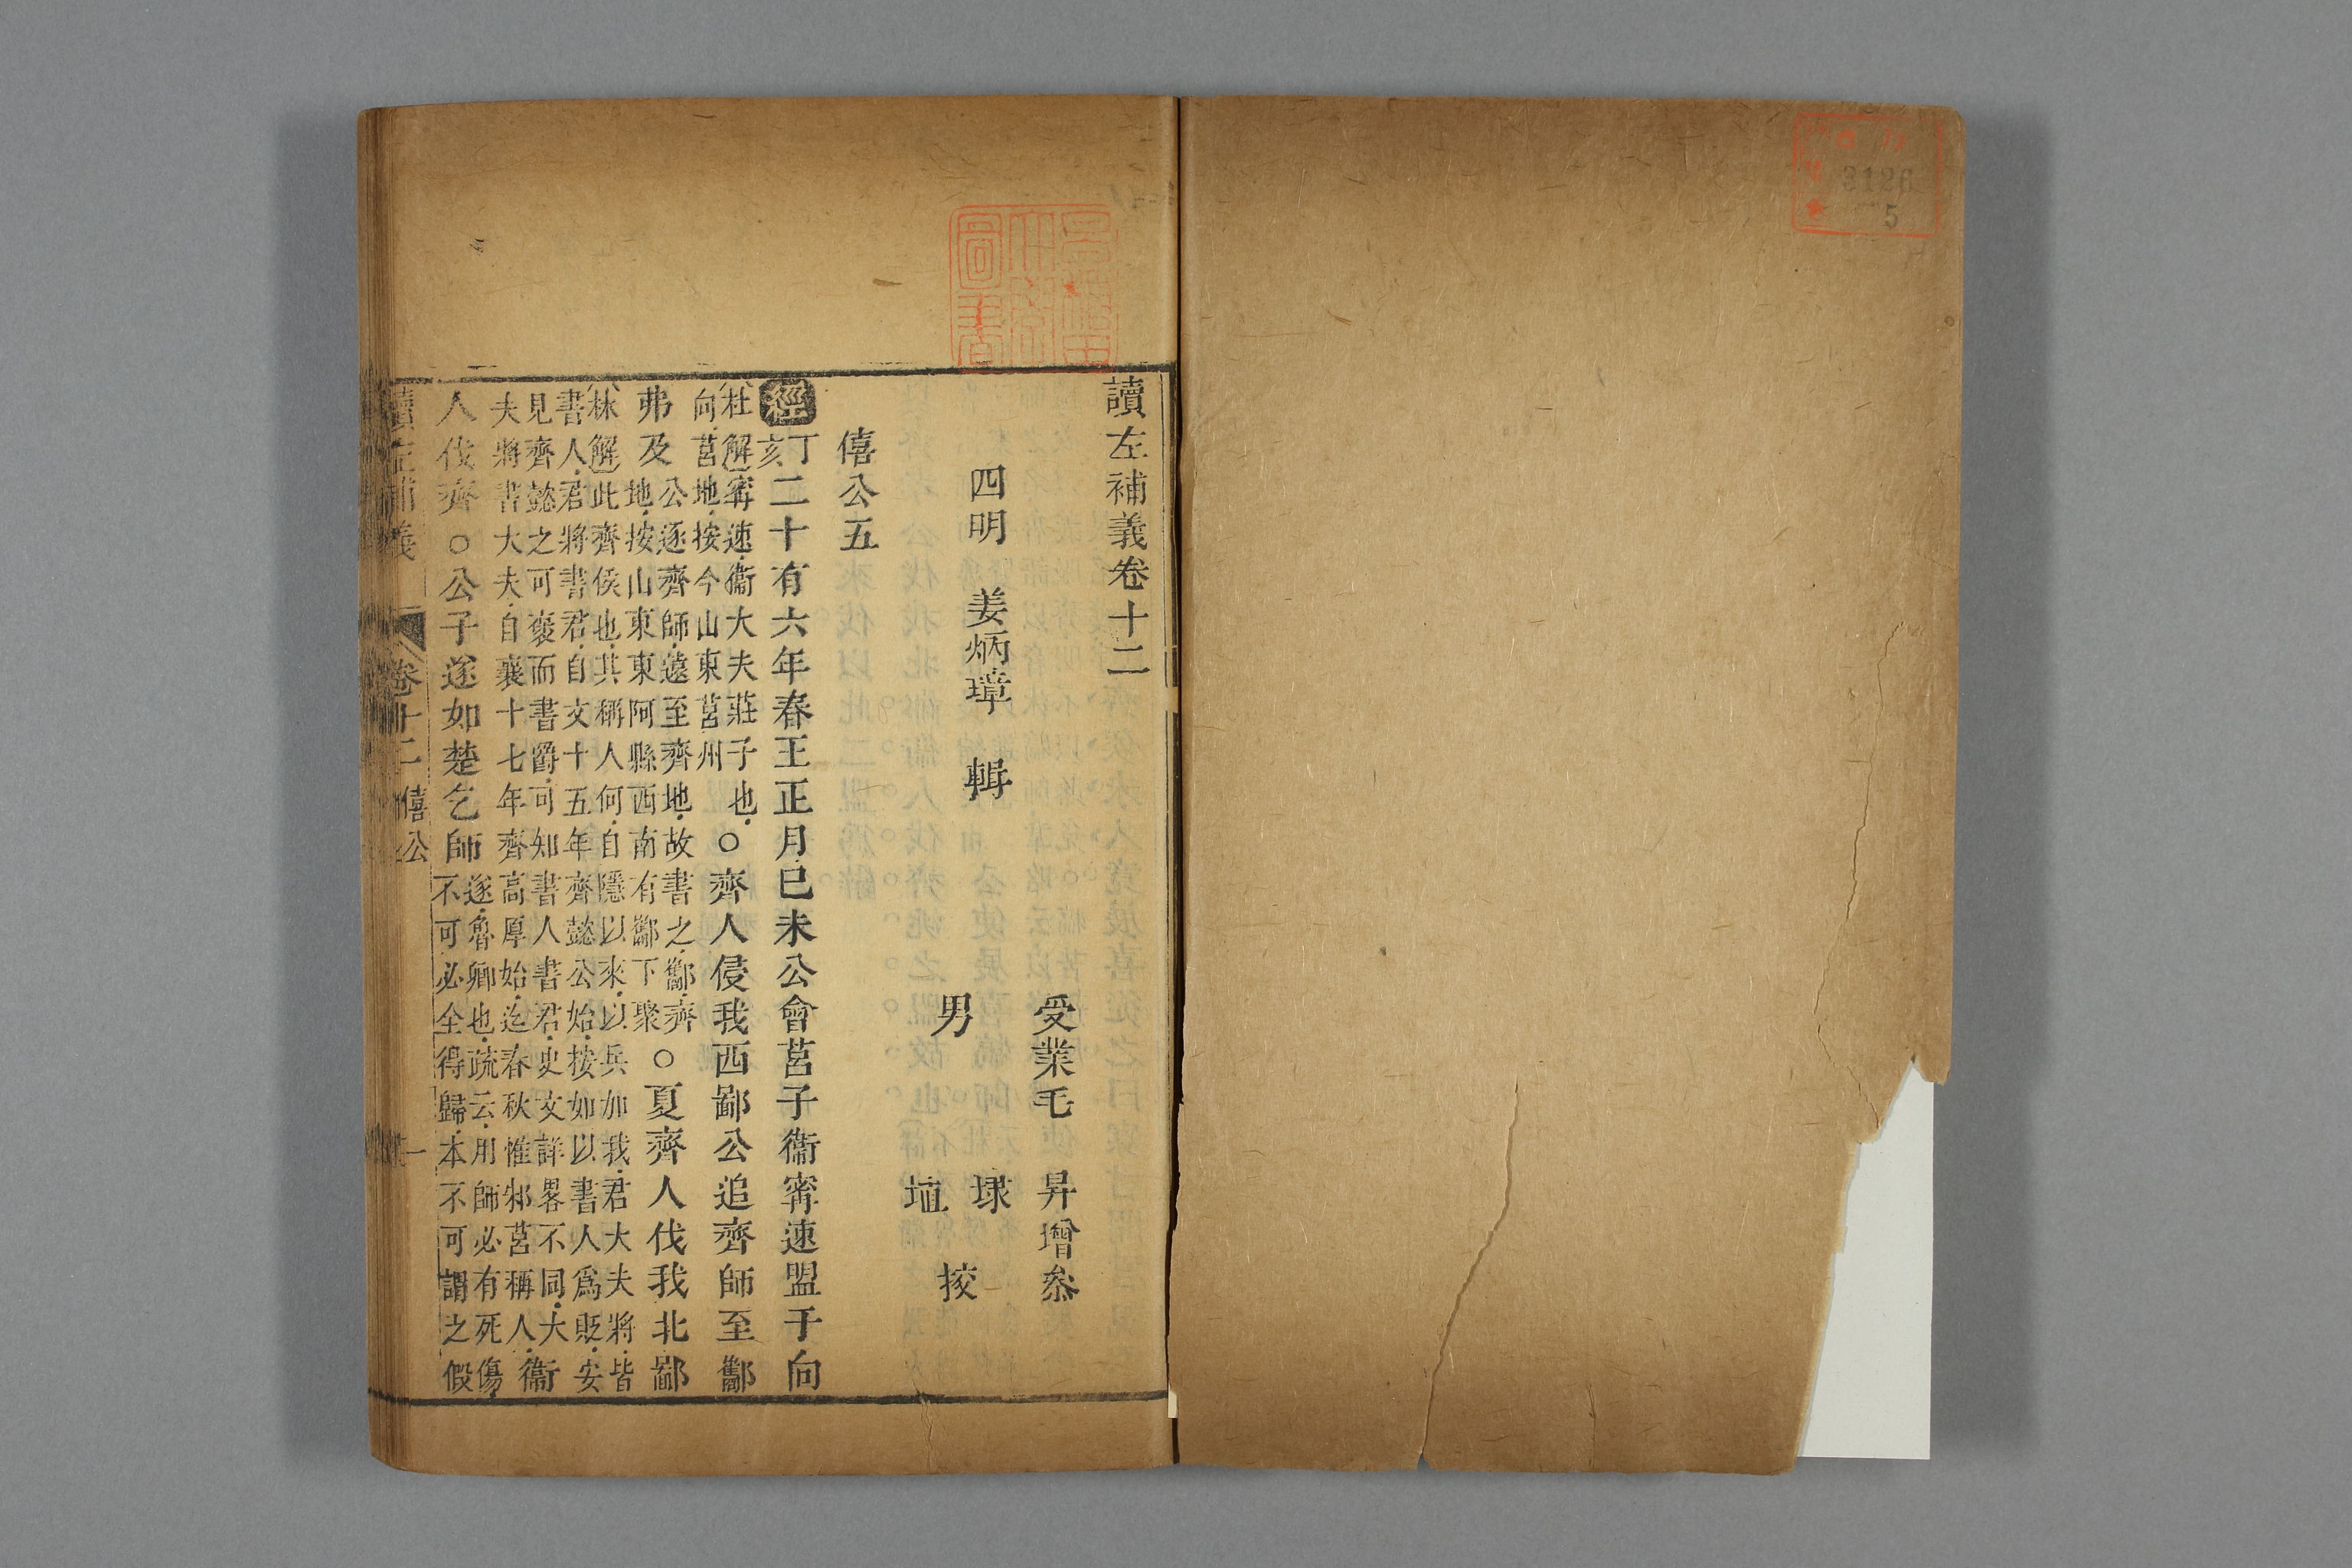 3126
5
早稻田
大學
圖書
讀左補義卷十二
受業毛　昇增叅
四明　姜炳璋　輯
男　球　埴　挍
僖公五
經丁亥二十有六年春王正月己未公會莒子衞甯速盟于向
杜解甯速衞大夫莊子也
向莒地按今山東莒州
○齊人侵我西鄙公追齊師至酅
弗及
公逐齊師遠至齊地故書之酅齊
地按山東東阿縣西南有酅下聚
○夏齊人伐我北鄙
林解此齊侯也其稱人何自隱以來以兵加我君大夫將皆
書人君將書君自文十五年齊懿公始按如以書人爲貶安
見齊懿之可褒而書爵可知書人書君史文詳畧不同大
夫將書大夫自襄十七年齊高厚始迄春秋惟邾莒稱人
衞
人伐齊○公子遂如楚乞師
遂魯卿也疏云用師必有死傷
不可必全得歸本不可謂之假
讀左補義　卷十二僖公　一